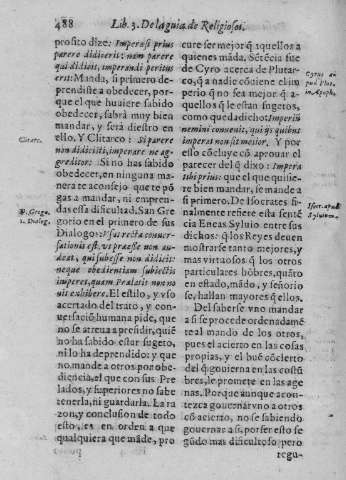 488 Lib. 3. De la guia de Religiosos.
posito dize: Imperasi prius
parere didiceris: nam parere
qui didicit, imperandi peritus
erit: Manda, si primero de-
prendiste a obedecer, por-
que el que huuiere sabido
obedecer, sabrà muy bien
mandar, y serà diestro en
ello. Y Clitarco: Si parere
non didicisti, imperare ne ag-
greditor: Si no has sabido
obedecer, en ninguna ma-
nera te aconsejo que te põ-
gas a mandar, ni empren-
das esta dificultad. San Gre
gorio en el primero de sus
Dialogos: Vsus rectæ conuer-
sationis est, vt præesse non au-
deat, qui subesse non didicit:
neque obedientiam subiectis
imperet, quam Prælatis non no
uit exhibere. El estilo, y vso
acertado del trato, y con-
uersaciõ humana pide, que
no se atreua a presidir, quiẽ
no ha sabido estar sugeto,
ni lo ha deprendido: y que
no mande a otros por obe-
diencia, el que con sus Pre
lados, y superiores no sabe
tenerla, ni guardarla. La ra
zon, y conclusion de todo
esto, es en orden a que
qualquiera que mãde, pro
Clitarc.
P. Grego.
1. Dialog.
cure ser mejor q̃ aquellos a
quienes mãda. Sẽtẽcia fue
de Cyro acerca de Plutar-
co, q̃ a nadie cõuiene el im
perio q̃ no sea mejor q̃ a-
quellos q̃ le estan sugetos,
como quedadicho: Imperiũ
nemini conuenit, qui ijs quibus
imperat non sit melior. Y por
esso cõcluye cõ aprouar el
parecer del q̃ dixo: Impera
tibi prius: que el que quisie-
re bien mandar, se mande a
si primero. De Isocrates fi-
nalmente refiere esta sentẽ
cia Eneas Syluio entre sus
dichos: q̃ los Reyes deuen
mostrarse tanto mejores, y
mas virtuosos q̃ los otros
particulares hõbres, quãto
en estado, mãdo, y señorio
se hallan mayores q̃ ellos.
Del saberse vno mandar
a si se procede ordenadamẽ
te al mando de los otros,
pues el acierto en las cosas
propias, y el buẽ cõcierto
del q̃ gouierna en las costũ
bres, le promete en las age
nas. Porque aunque acon-
tezca gouernar vno a otros
cõ acierto, no se sabiendo
gouernar a si, por ser esto se
gũdo mas dificultoso, pero
Cyrus ap
pud Plut.
in Apoph.
Isocr. apud
Syluium.
regu-